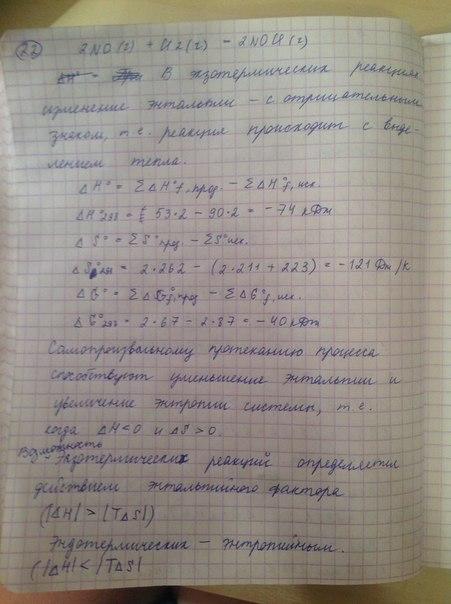 22) 2NO(г) + Cl2(г) = 2NOCl(г)
В экзотермических реакциях
изменение энтальпии – с отрицательным
знаком, т.е. реакция происходит с выде-
лением тепла.
ΔH° = ΣΔH°f, прод. – ΣΔH°f, исх.
ΔH°298 = 53·2 – 90·2 = –74 кДж
ΔS° = ΣS°прод. – ΣS°исх.
ΔS°298 = 2·262 – (2·211 + 223) = –121 Дж/К
ΔG° = ΣΔG°f, прод – ΣΔG°f, исх.
ΔG°298 = 2·67 – 2·87 = –40 кДж
Самопроизвольному протеканию процесса
способствуют уменьшение энтальпии и
увеличение энтропии системы, т.е.
когда ΔH<0 и ΔS>0.
Возможность
Экзотермических реакций определяется
действием энтальпийного фактора
(|ΔH| > |TΔS|)
Эндотермических – энтропийным.
(|ΔH| < |TΔS|